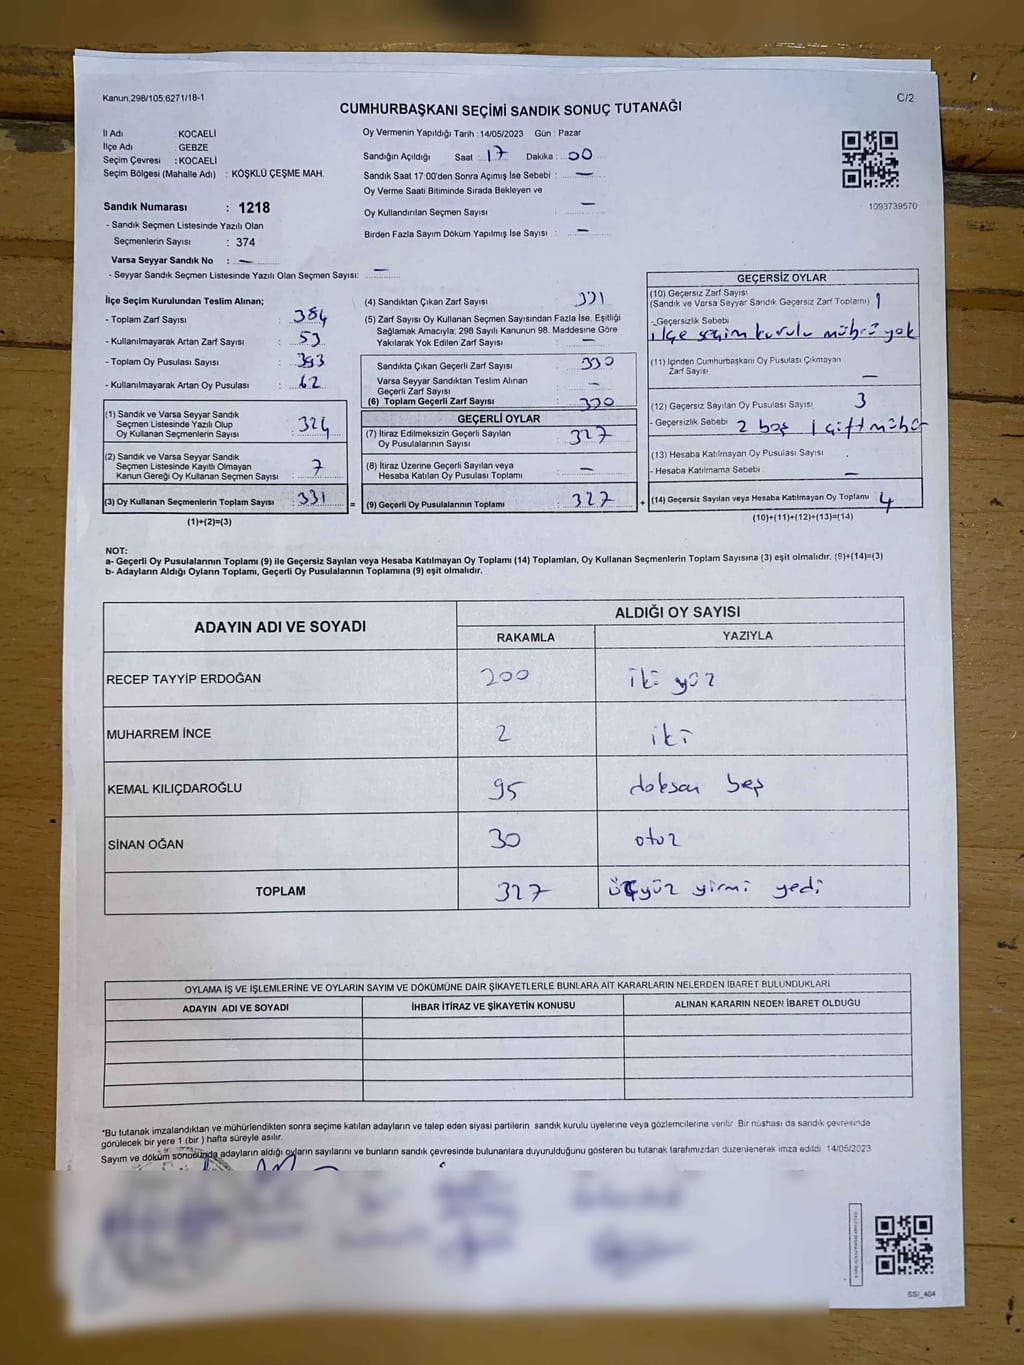 Kanun,298/105;6271/18-1
C/2
CUMHURBAŞKANI SEÇİMİ SANDIK SONUÇ TUTANAĞI
İl Adı KOCAELİ
İlçe Adı GEBZE
Seçim Çevresi : KOCAELİ
Seçim Bölgesi (Mahalle Adı) : KÖŞKLÜ ÇEŞME MAH.
Sandık Numarası : 1218
- Sandık Seçmen Listesinde Yazılı Olan
Seçmenlerin Sayısı : 374
Varsa Seyyar Sandık No : —
- Seyyar Sandık Seçmen Listesinde Yazılı Olan Seçmen Sayısı: —
Oy Vermenin Yapıldığı Tarih : 14/05/2023 Gün : Pazar
Sandığın Açıldığı Saat : 17 Dakika : 00
Sandık Saat 17:00'den Sonra Açımış İse Sebebi : —
Oy Verme Saati Bitiminde Sırada Bekleyen ve
Oy Kullandırılan Seçmen Sayısı : —
Birden Fazla Sayım Döküm Yapılmış İse Sayısı : —
1093739570
İlçe Seçim Kurulundan Teslim Alınan;
- Toplam Zarf Sayısı : 384
- Kullanılmayarak Artan Zarf Sayısı : 53
- Toplam Oy Pusulası Sayısı : 393
- Kullanılmayarak Artan Oy Pusulası : 62
(1) Sandık ve Varsa Seyyar Sandık
Seçmen Listesinde Yazılı Olup
Oy Kullanan Seçmenlerin Sayısı : 324
(2) Sandık ve Varsa Seyyar Sandık
Seçmen Listesinde Kayıtlı Olmayan
Kanun Gereği Oy Kullanan Seçmen Sayısı : 7
(3) Oy Kullanan Seçmenlerin Toplam Sayısı : 331 =
(1)+(2)=(3)
(4) Sandıktan Çıkan Zarf Sayısı : 331
(5) Zarf Sayısı Oy Kullanan Seçmen Sayısından Fazla İse, Eşitliği
Sağlamak Amacıyla; 298 Sayılı Kanunun 98. Maddesine Göre
Yakılarak Yok Edilen Zarf Sayısı : —
Sandıkta Çıkan Geçerli Zarf Sayısı : 330
Varsa Seyyar Sandıktan Teslim Alınan
Geçerli Zarf Sayısı : —
(6) Toplam Geçerli Zarf Sayısı : 330
GEÇERLİ OYLAR
(7) İtiraz Edilmeksizin Geçerli Sayılan
Oy Pusulasının Sayısı : 327
(8) İtiraz Üzerine Geçerli Sayılan veya
Hesaba Katılan Oy Pusulası Toplamı : —
(9) Geçerli Oy Pusulalarının Toplamı : 327 +
GEÇERSİZ OYLAR
(10) Geçersiz Zarf Sayısı
(Sandık ve Varsa Seyyar Sandık Geçersiz Zarf Toplamı) 1
- Geçersizlik Sebebi
ilçe seçim kurulu mührü yok
(11) İçinden Cumhurbaşkanı Oy Pusulası Çıkmayan
Zarf Sayısı —
(12) Geçersiz Sayılan Oy Pusulası Sayısı 3
- Geçersizlik Sebebi 2 boş 1 çift mühür
(13) Hesaba Katılmayan Oy Pusulası Sayısı
- Hesaba Katılmama Sebebi —
(14) Geçersiz Sayılan veya Hesaba Katılmayan Oy Toplamı 4
(10)+(11)+(12)+(13)=(14)
NOT:
a- Geçerli Oy Pusulalarının Toplamı (9) ile Geçersiz Sayılan veya Hesaba Katılmayan Oy Toplamı (14) Toplamları, Oy Kullanan Seçmenlerin Toplam Sayısına (3) eşit olmalıdır. (9)+(14)=(3)
b- Adayların Aldığı Oyların Toplamı, Geçerli Oy Pusulalarının Toplamına (9) eşit olmalıdır.
ADAYIN ADI VE SOYADI
ALDIĞI OY SAYISI
RAKAMLA YAZIYLA
RECEP TAYYİP ERDOĞAN 200 iki yüz
MUHARREM İNCE 2 iki
KEMAL KILIÇDAROĞLU 95 doksan beş
SİNAN OĞAN 30 otuz
TOPLAM 327 üçyüz yirmi yedi
OYLAMA İŞ VE İŞLEMLERİNE VE OYLARIN SAYIM VE DÖKÜMÜNE DAİR ŞİKAYETLERLE BUNLARA AİT KARARLARIN NELERDEN İBARET BULUNDUKLARI
ADAYIN ADI VE SOYADI İHBAR İTİRAZ VE ŞİKAYETİN KONUSU ALINAN KARARIN NEDEN İBARET OLDUĞU
*Bu tutanak imzalandıktan ve mühürlendikten sonra seçime katılan adayların ve talep eden siyasi partilerin sandık kurulu üyelerine veya gözlemcilerine verilir. Bir nüshası da sandık çevresinde
görülecek bir yere 1 (bir ) hafta süreyle asılır.
Sayım ve döküm sonucunda adayların aldığı oyların sayılarını ve bunların sandık çevresinde bulunanlara duyurulduğunu gösteren bu tutanak tarafımızdan düzenlenerek imza edildi. 14/05/2023
SSI_404